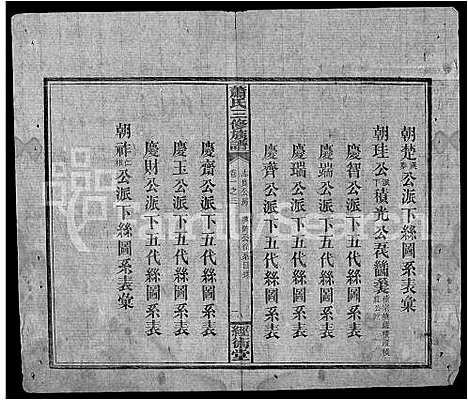 朝楚公派下絲圖系表彙
朝珪公積光公
慶智公派下五代絲圖系表
慶瑞公派下五代絲圖系表
慶瑞公派下五代絲圖系表
慶齊公派下五代絲圖系表
蕭氏三修族譜
卷之三
經術堂
慶齋公派下五代絲圖系表
慶玉公派下五代絲圖系表
慶財公派下五代絲圖系表
朝祥公派下絲圖系表彙
FamilySearch